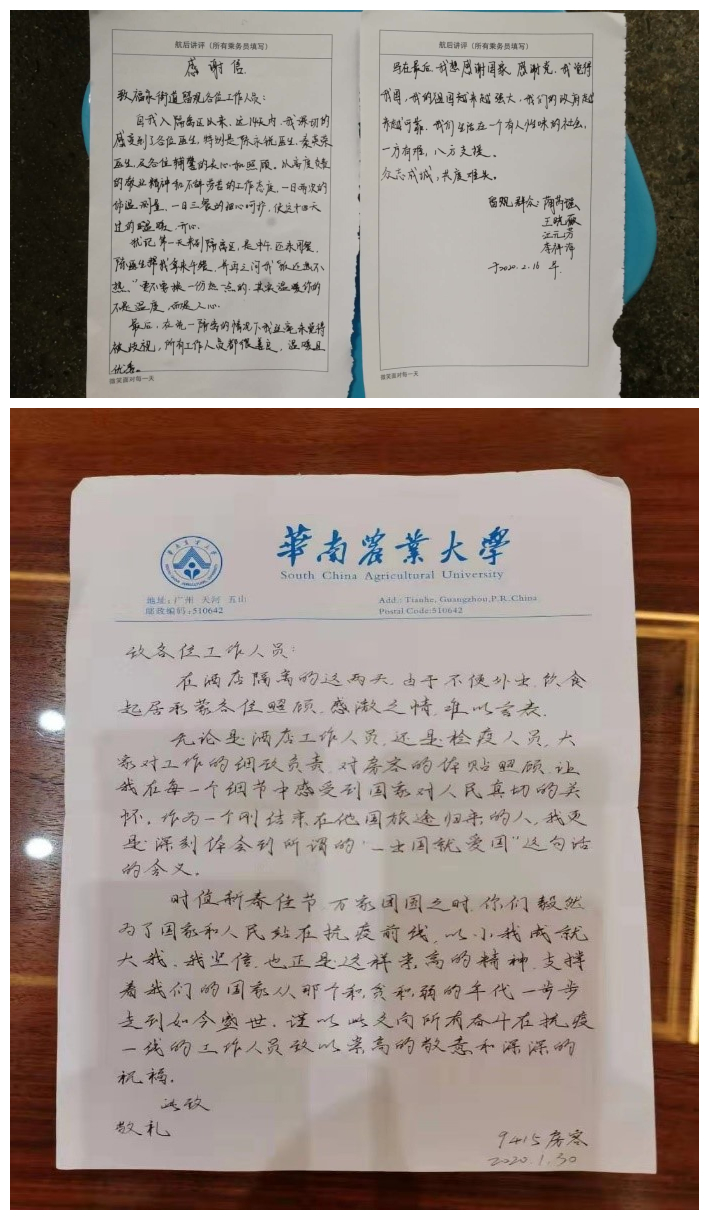 航后讲评（所有乘务员填写）
感谢信
致福永街道留观各位工作人员：
自我入隔离区以来，这14天内，我深切的
感受到了各位医生，特别是陈永锐医生、
医生，及各位辅警的关心和照顾。从高度负责
的敬业精神和不辞劳苦的工作态度，一日两次的
体温测量，一日三餐的细心呵护，使这十四天
过的温暖、开心。
犹记第一天来到隔离区，是中午，还未用餐，
陈医生帮我拿来午餐，并再三问我“饭还热不
热。”要不要换一份热一点的，其实温暖你的
不是温度，而是人心。
最后，在统一隔离的情况下我丝毫未觉得
被歧视，所有工作人员都很善良，温暖且
优秀。
微笑面对每一天
航后讲评（所有乘务员填写）
写在最后，我想感谢国家，感谢党，我觉得
我国，我的祖国越来越强大，我们的政府越
来越可靠，我们生活在一个有人性味的社会，
一方有难，八方支援。
众志成城，共度难关。
留观群众：
王晓薇
江元芳
李科萍
于2020.2.16 早.
微笑面对每一天
華南農業大學
South China Agricultural University
地址：广州 天河 五山
邮政编码：510642
Add.: Tianhe, Guangzhou,P.R.China
Postal Code:510642
致各位工作人员：
在酒店隔离的这两天，由于不便外出，饮食
起居承蒙各位照顾，感激之情，难以言表。
无论是酒店工作人员，还是检疫人员，大
家对工作的细致负责，对房客的体贴照顾，让
我在每一个细节中感受到国家对人民真切的关
怀。作为一个刚结束在他国旅途归来的人，我更
是深刻体会到所谓的“一出国就爱国”这句话
的含义。
时值新春佳节，万家团圆之时，你们毅然
为了国家和人民站在抗疫前线，以小我成就
大我。我坚信，也正是这样崇高的精神，支撑
着我们的国家从那个积贫积弱的年代一步步
走到如今盛世。谨以此文向所有奋斗在抗疫
一线的工作人员致以崇高的敬意和深深的
祝福。
此致
敬礼
9415房客
2020.1.30